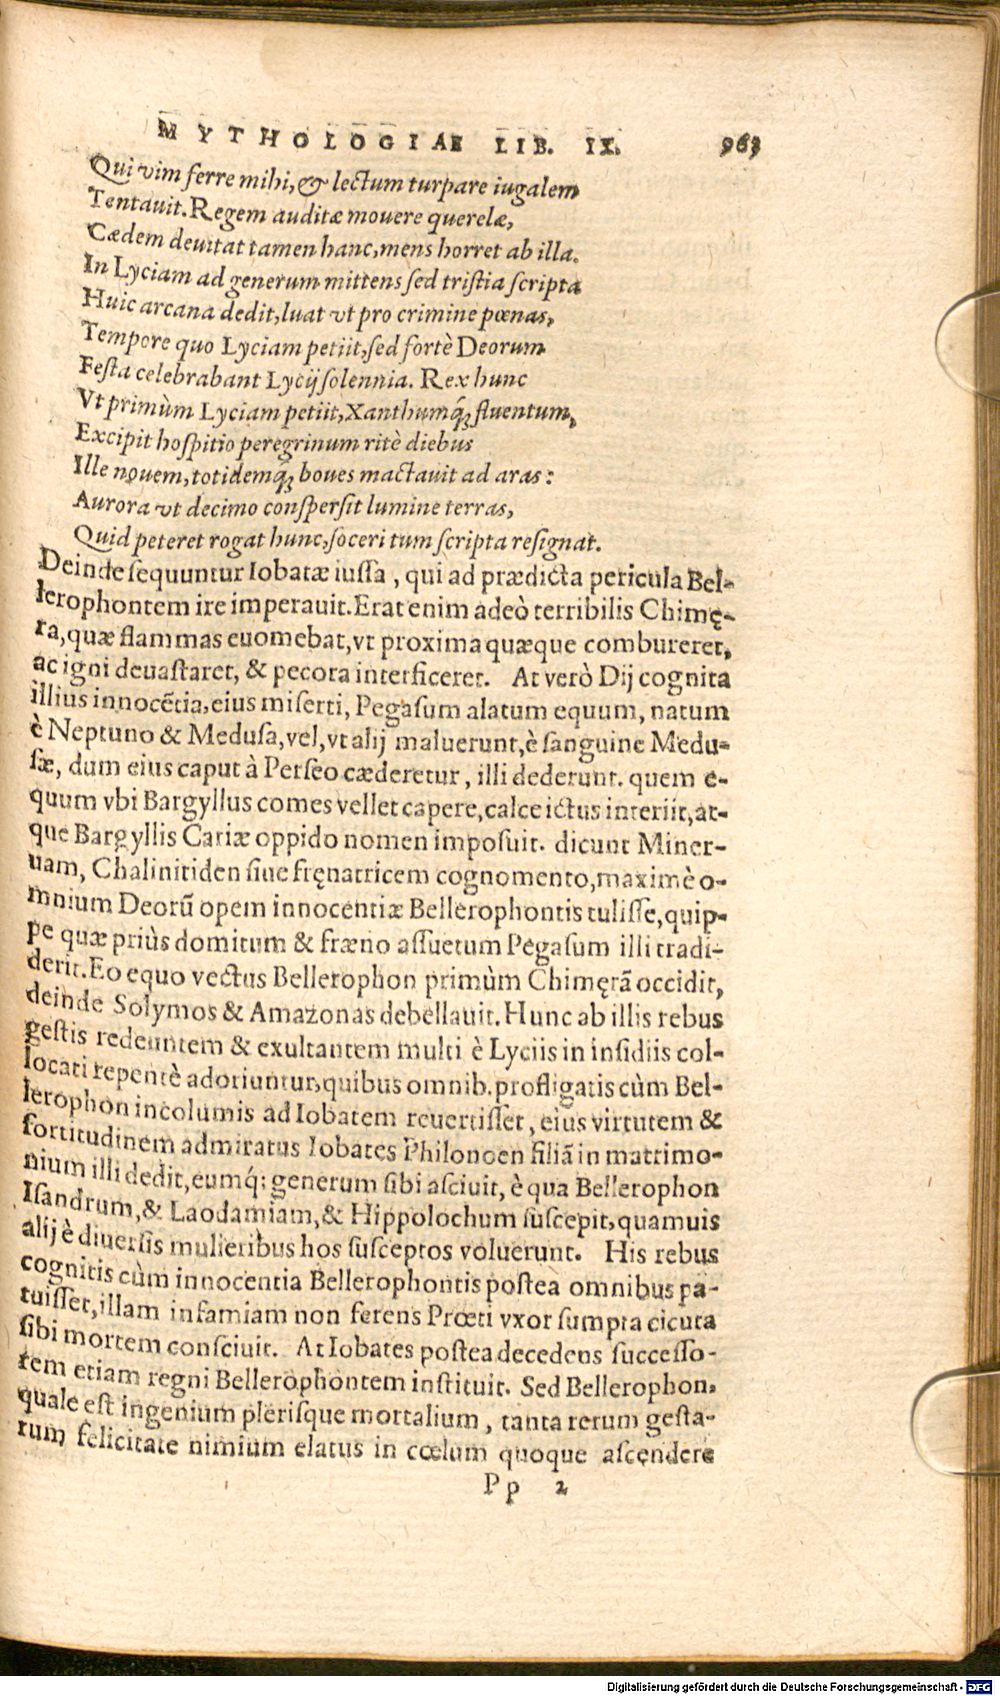 MYTHOLOGIAE LIB. IX. 963
Qui vim ferre mihi, & lectum turpare iugalem
Tentauit. Regem auditæ mouere querelæ,
Cædem deuitat tamen hanc, mens horret ab illa.
In Lyciam ad generum mittens sed tristia scripta
Huic arcana dedit, luat vt pro crimine pœnas,
Tempore quo Lyciam petiit, sed fortè Deorum
Festa celebrabant Lycij solennia. Rex hunc
Vt primùm Lyciam petiit, Xanthumq́; fluentum,
Excipit hospitio peregrinum ritè diebus
Ille nouem, totidemq́; boues mactauit ad aras:
Aurora vt decimo conspersit lumine terras,
Quid peteret rogat hunc, soceri tum scripta resignat.
Deinde sequuntur Iobatæ iussa, qui ad prædicta pericula Bel-
lerophontem ire imperauit. Erat enim adeò terribilis Chimę-
ra, quæ flammas euomebat, vt proxima quæque combureret,
ac igni deuastaret, & pecora interficeret. At verò Dij cognita
illius innocẽtia, eius miserti, Pegasum alatum equum, natum
è Neptuno & Medusa, vel, vt alij maluerunt, è sanguine Medu-
sæ, dum eius caput à Perseo cæderetur, illi dederunt. quem e-
quum vbi Bargyllus comes vellet capere, calce ictus interiit, at-
que Bargyllis Cariæ oppido nomen imposuit. dicunt Miner-
uam, Chalinitiden siue fręnatricem cognomento, maximè o-
mnium Deorũ opem innocentiæ Bellerophontis tulisse, quip-
pe quæ priùs domitum & fræno assuetum Pegasum illi tradi-
derit. Eo equo vectus Bellerophon primùm Chimęrã occidit,
deinde Solymos & Amazonas debellauit. Hunc ab illis rebus
gestis redeuntem & exultantem multi è Lyciis in insidiis col-
locati repentè adoriuntur, quibus omnib. profligatis cùm Bel-
lerophon incolumis ad Iobatem reuertisset, eius virtutem &
fortitudinem admiratus Iobates Philonoen filiã in matrimo-
nium illi dedit, eumq́; generum sibi asciuit, è qua Bellerophon
Isandrum, & Laodamiam, & Hippolochum suscepit, quamuis
alij è diuersis mulieribus hos susceptos voluerunt. His rebus
cognitis cùm innocentia Bellerophontis postea omnibus pa-
tuisset, illam infamiam non ferens Prœti vxor sumpta cicuta
sibi mortem consciuit. At Iobates postea decedens successo-
rem etiam regni Bellerophontem instituit. Sed Bellerophon,
quale est ingenium plerisque mortalium, tanta rerum gesta-
rum felicitate nimium elatus in cœlum quoque ascendere
Pp 2
Digitalisierung gefördert durch die Deutsche Forschungsgemeinschaft - DFG